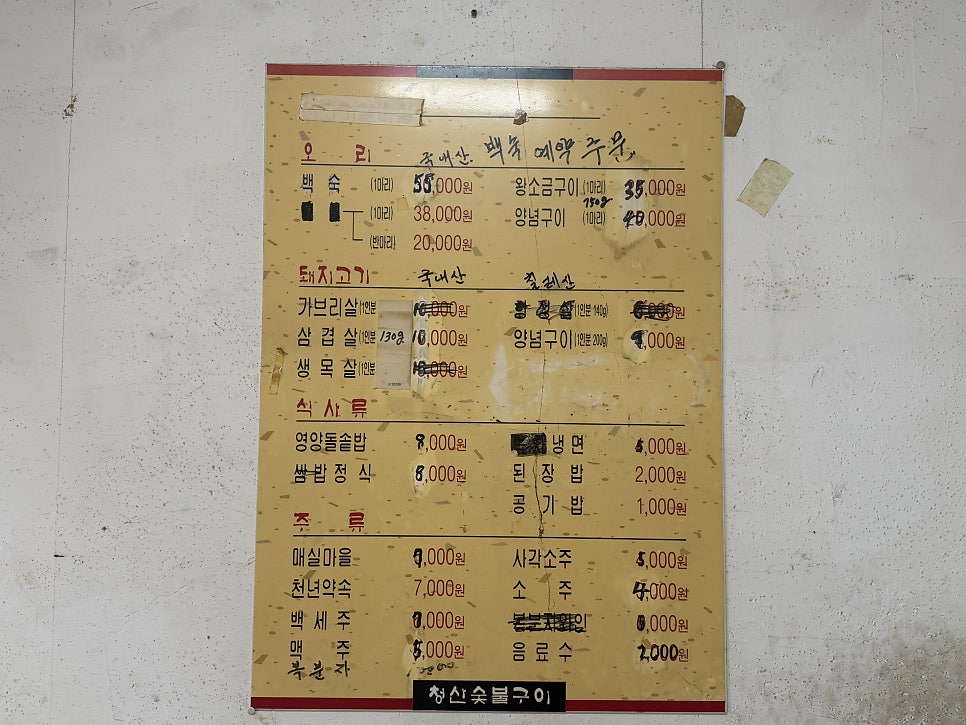 오 리 국내산. 백숙 예약 주문,
백 숙 (1마리) 55,000원 왕소금구이 (1마리) 35,000원
(1마리) 38,000원 양념구이 750g (1마리) 40,000원
(반마리) 20,000원
돼지고기 국내산 칠레산
가브리살 (1인분 10,000원 항정살 (1인분 140g)
삼 겹 살 (1인분 130g 10,000원 양념구이 (1인분 200g) 9,000원
생 목 살 (1인분 10,000원
식 사 류
영양돌솥밥 8,000원 냉 면 5,000원
쌈밥정식 8,000원 된 장 밥 2,000원
공 기 밥 1,000원
주 류
매실마을 7,000원 사각소주 5,000원
천년약속 7,000원 소 주 4,000원
백 세 주 7,000원
맥 주 5,000원 음 료 수 2,000원
복분자
청산숯불구이